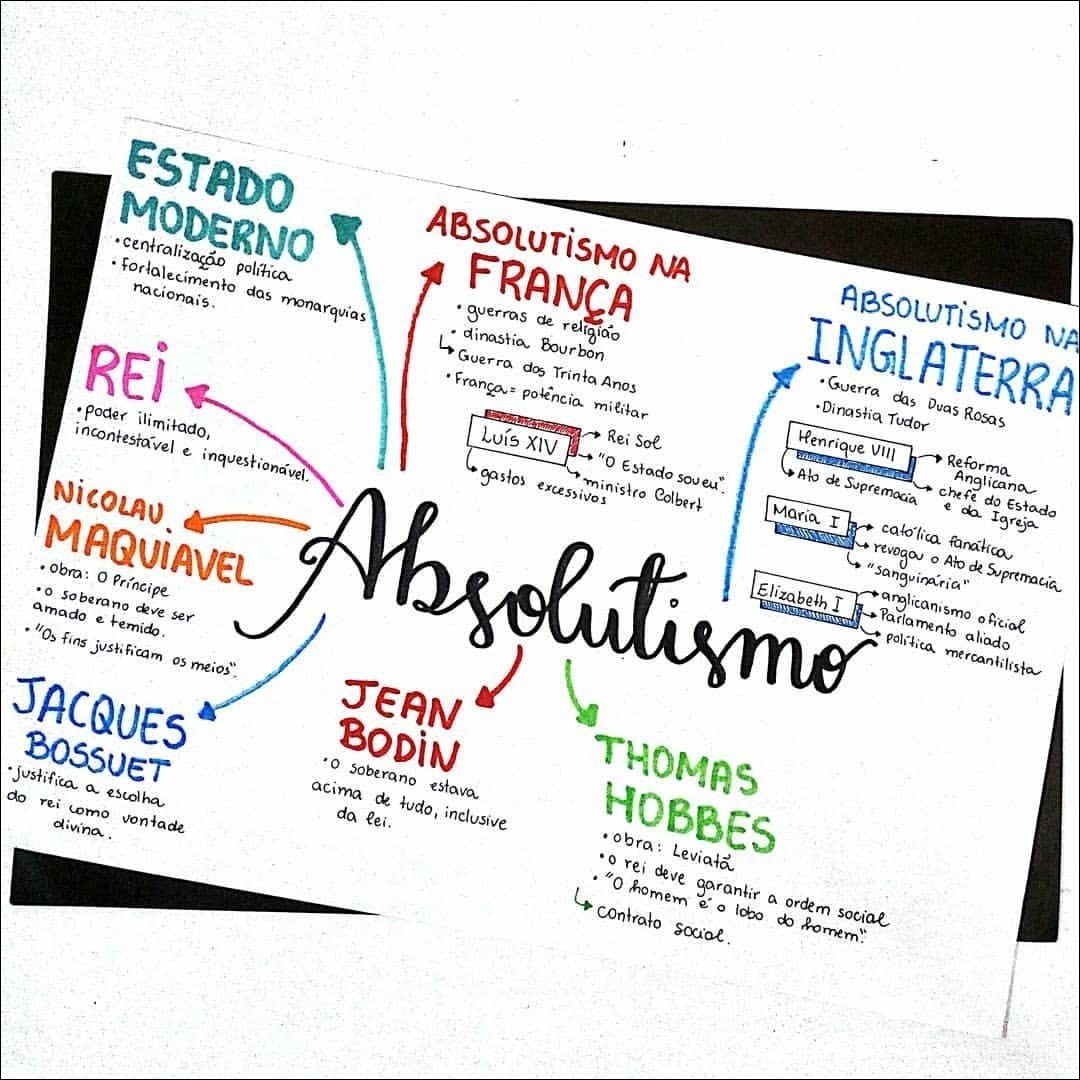 ESTADO
MODERNO
•centralização política
•fortalecimento das monarquias
nacionais.
ABSOLUTISMO NA
FRANÇA
•guerras de religião
•dinastia Bourbon
↳Guerra dos Trinta Anos
•França= potência militar
Luís XIV
→Rei Sol
→"O Estado sou eu".
→ministro Colbert
↳gastos excessivos
ABSOLUTISMO NA
INGLATERRA
•Guerra das Duas Rosas
•Dinastia Tudor
Henrique VIII
→Reforma
Anglicana
→chefe do Estado
e da Igreja
↳Ato de Supremacia
Maria I
→católica fanática
→revogou o Ato de Supremacia
→"sanguinária"
Elizabeth I
→anglicanismo oficial
→Parlamento aliado
→política mercantilista
REI
•poder ilimitado,
incontestável e inquestionável.
NICOLAU
MAQUIAVEL
•obra: O Príncipe
•o soberano deve ser
amado e temido.
•"Os fins justificam os meios".
Absolutismo
JACQUES
BOSSUET
•justifica a escolha
do rei como vontade
divina.
JEAN
BODIN
•o soberano estava
acima de tudo, inclusive
da lei.
THOMAS
HOBBES
•obra: Leviatã
•o rei deve garantir a ordem social
•"O homem é o lobo do homem".
↳contrato social.